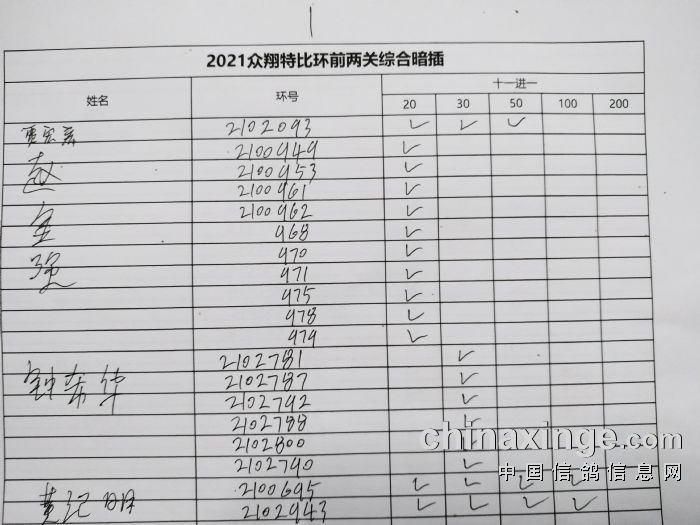 2021众翔特比环前两关综合暗插
姓名 环号 十一进一
20 30 50 100 200
2102093 ✓ ✓ ✓
2100949 ✓
赵 2100953 ✓
2100961 ✓
金 2100962 ✓
968 ✓
970 ✓
强 971 ✓
975 ✓
978 ✓
979 ✓
2102781 ✓
钟春华 2102787 ✓
2102792 ✓
2102788 ✓
2102800 ✓
2102790 ✓
黄记明 2100695 ✓ ✓ ✓
2102943 ✓ ✓ ✓ ✓
chinaxinge.com
中国信鸽信息网